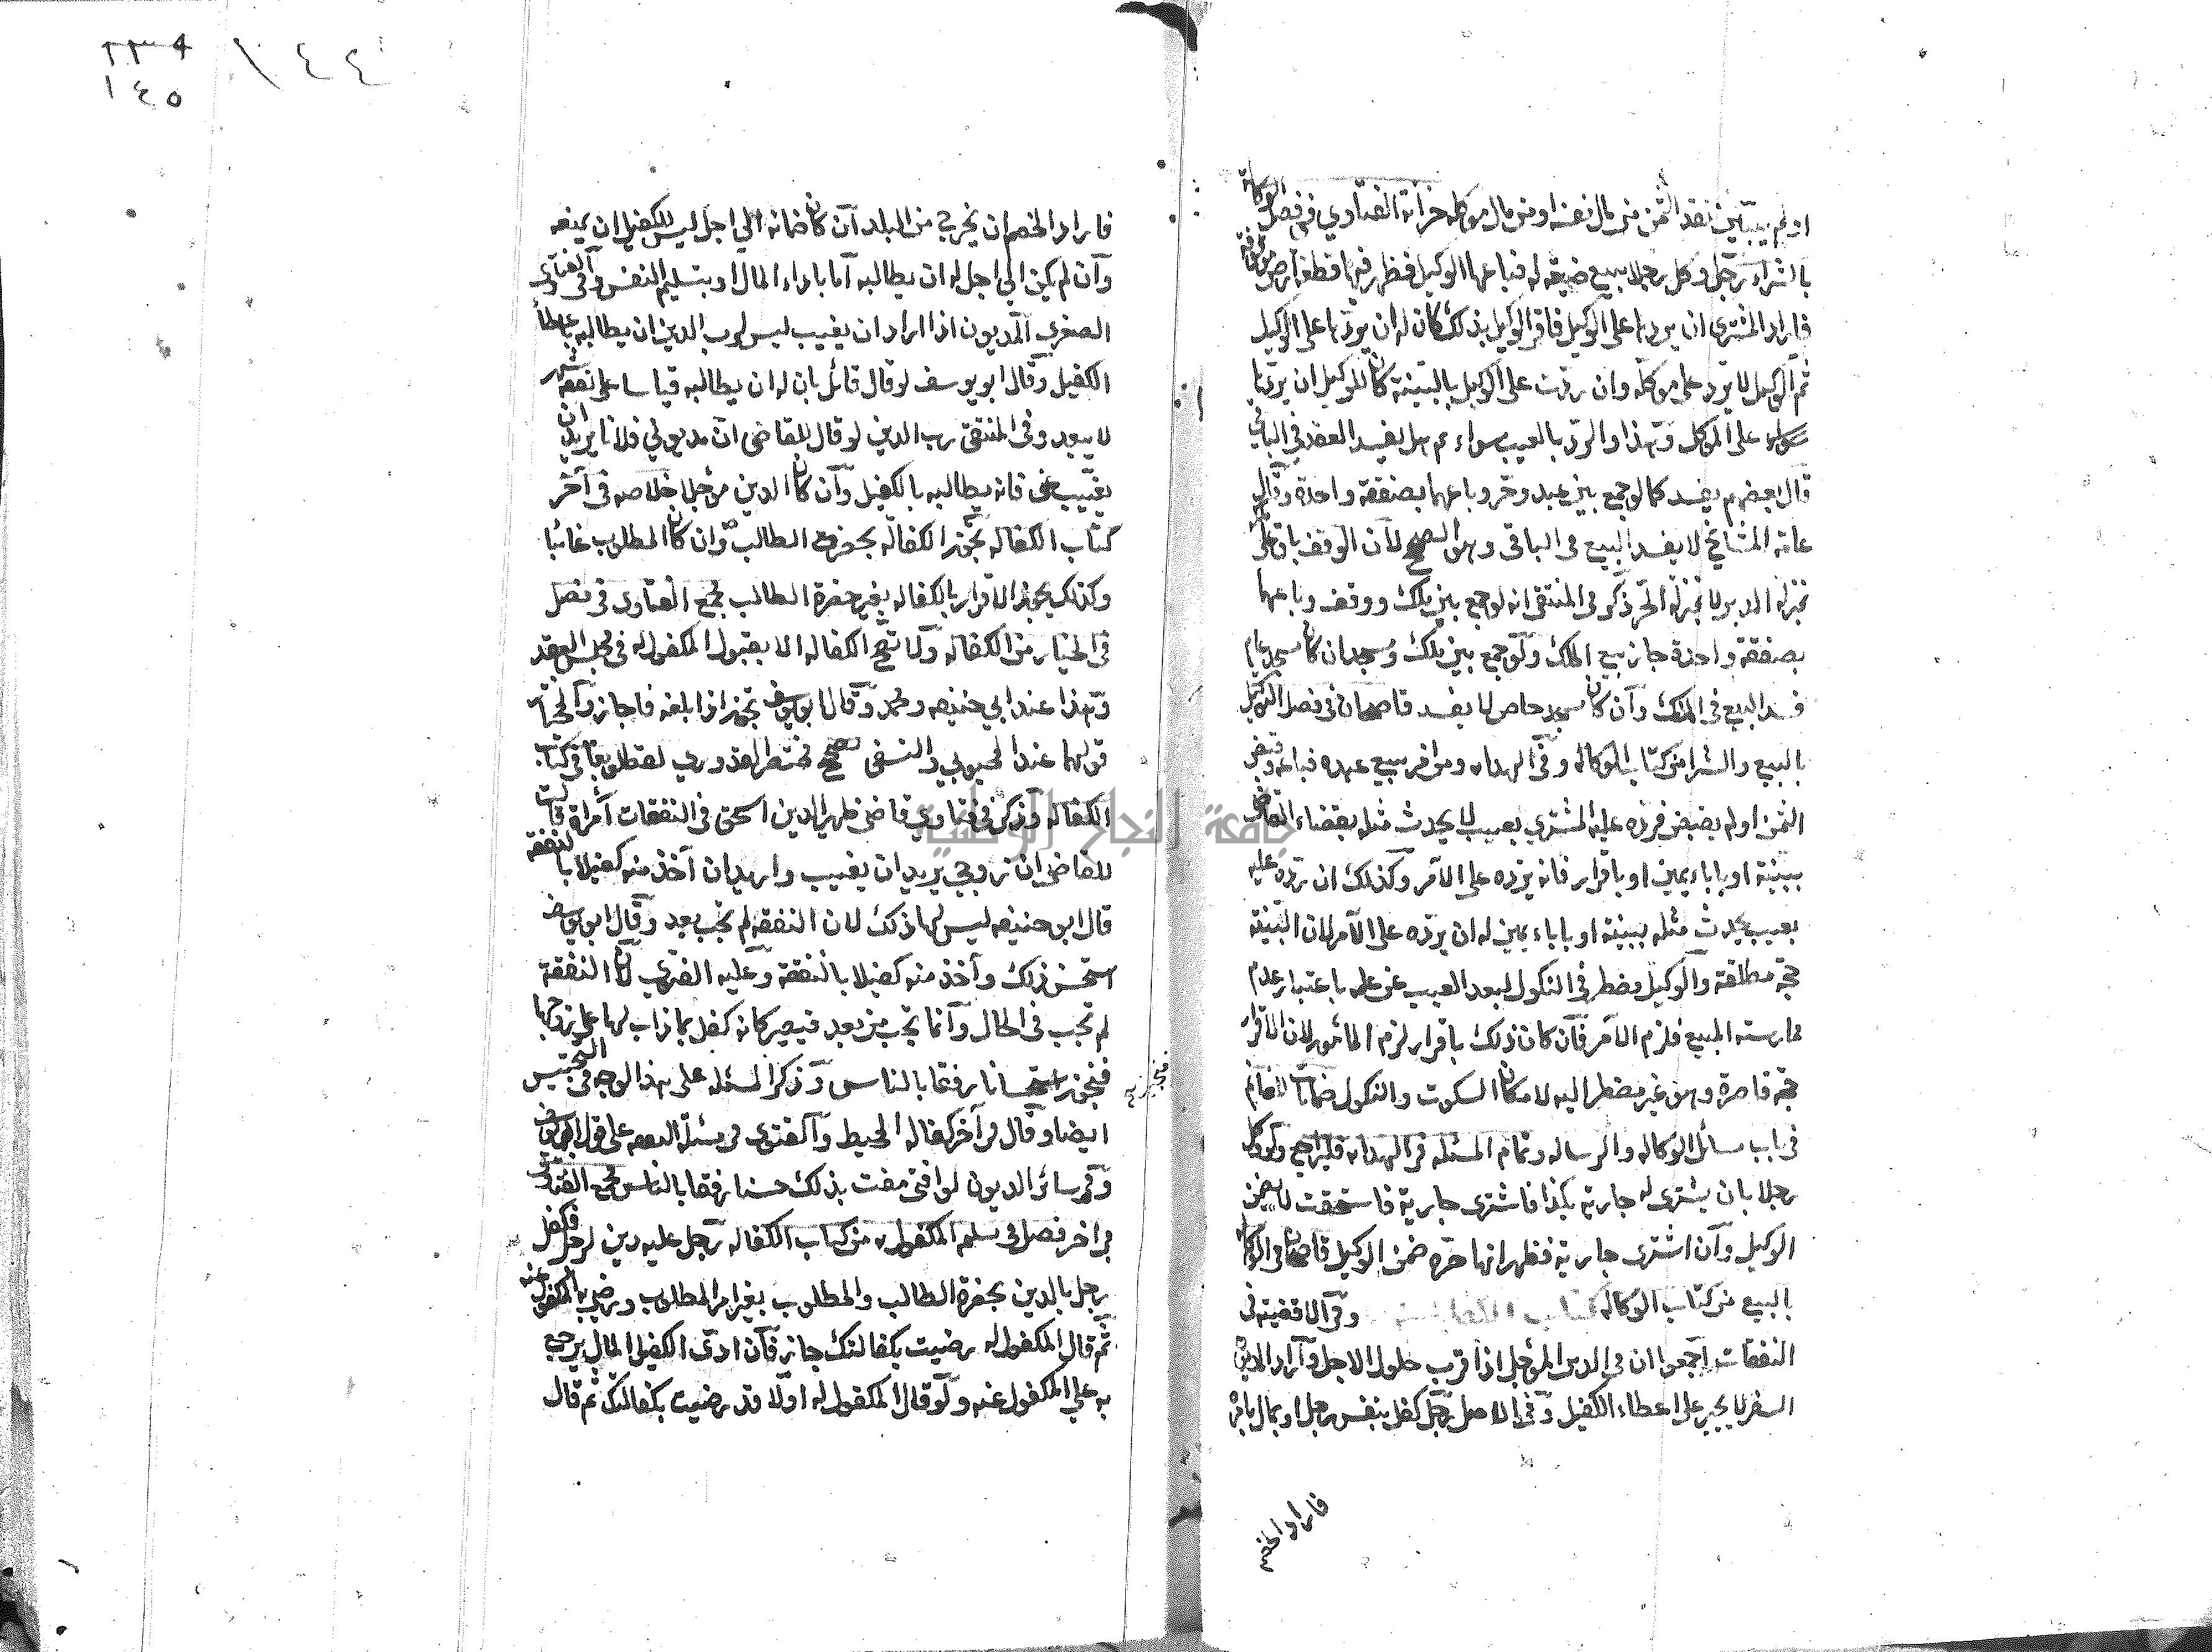 او لم يبين نقد الثمن من مال نفسه او من مال موكله خزانة الفتاوي في فصل الوكالة
بالشراء رجل وكل رجلا ببيع ضيعة له فباعها الوكيل فظهر فيها قطعة ارض موقوفة
فاراد المشتري ان يردها على الوكيل فاقر الوكيل بذلك كان له ان يردها على الوكيل
ثم الوكيل لا يرد على موكله وان ردت على الوكيل بالبينة كان للوكيل ان يردها
على الموكل وهذا والرد بالعيب سواء ثم هل يفسد العقد في الباقي
قال بعضهم يفسد كما لو جمع بين عبد وحر وباعهما بصفقة واحدة وقال
عامة المشايخ لا يفسد البيع في الباقي وهو الصحيح لان الوقف باق على
بمنزلة المدبر لا بمنزلة الحر ذكر في المنتقى انه لو جمع بين ملك ووقف وباعهما
بصفقة واحدة جاز بيع الملك ولو جمع بين ملك ومسجد ان كان مسجد عام
فسد البيع في الملك وان كان مسجد خاص لا يفسد قاضيخان في فصل التوكيل
بالبيع والشرا من كتاب الوكالة وفي الهداية ومن امر ببيع عبده فباعه وقبض
الثمن او لم يقبض فرده عليه المشتري بعيب لا يحدث مثله بقضاء القاضي
ببينة او باباء يمين او باقرار فانه يرده على الآمر وكذلك ان رده عليه
بعيب يحدث مثله ببينة او باباء يمين له ان يرده على الآمر لان البينة
حجة مطلقة والوكيل مضطر في النكول لبعد العيب عن علمه باعتبار عدم
ممارسته المبيع فلزم الآمر فان كان ذلك باقرار لزم المأمور لان الاقرار
حجة قاصرة وهو غير مضطر اليه لامكان السكوت والنكول ضمانات الغانم
في باب مسائل الوكالة والرسالة وتمام المسئلة في الهداية فليراجع ولو وكل
رجلا بان يشتري له جارية بكذا فاشترى جارية فاستحقت لا يضمن
الوكيل وان اشترى جارية فظهر انها حرة ضمن الوكيل قاضيخان في الوكالة
بالبيع من كتاب الوكالة كتاب الكفالة وفي الاقضية في
النفقات اجمعوا ان في الدين المؤجل اذا قرب حلول الاجل واراد المديون
السفر لا يجبر على اعطاء الكفيل وفي الاصل رجل كفل بنفس رجل او بمال بامره
فاراد الخصم
١٤٤
١٤٥
فاراد الخصم ان يخرج من البلد ان كان ضمانه الى اجل ليس للكفيل ان يمنعه
وان لم يكن الى اجل له ان يطالبه اما باداء المال او بتسليم النفس وفي الفتاوى
الصغرى المديون اذا اراد ان يغيب ليس لرب الدين ان يطالبه باعطاء
الكفيل وقال ابو يوسف لو قال قائل بان له ان يطالبه قياسا على نفقة شهر
لا يبعد وفي المنتقى رب الدين لو قال للقاضي ان مديوني فلانا يريد ان
يغيب عني فانه يطالبه بالكفيل وان كان الدين مؤجلا خلاصه في آخر
كتاب الكفالة تجوز الكفالة بحضرة الطالب وان كان المطلوب غائبا
وكذلك يجوز الاقرار بالكفالة بغير حضرة الطالب مجمع الفتاوى في فصل
في الخيار من الكفالة ولا تصح الكفالة الا بقبول المكفول له في مجلس العقد
وهذا عند ابي حنيفة ومحمد وقال ابو يوسف تجوز اذا بلغه فاجاز والمختار
قولهما عند المحبوبي والنسفي تصحيح مختصر القدوري لقطلوبغا في كتاب
الكفالة وذكر في فتاوي قاضي ظهير الدين اسحق في النفقات امراة قالت
للقاضي ان زوجي يريد ان يغيب واريد ان آخذ منه كفيلا بالنفقة
قال ابو حنيفة ليس لها ذلك لان النفقة لم تجب بعد وقال ابو يوسف
استحسن ذلك وآخذ منه كفيلا بالنفقة وعليه الفتوى لان النفقة
لم تجب في الحال وانما تجب من بعد فيصير كانه كفل بما ذاب لها على زوجها
فنجوز استحسانا رفقا بالناس وذكر المسئلة على هذا الوجه في التجنيس
ايضا وقال في آخر كفالة المحيط والفتوى في مسئلة النفقة على قول ابي يوسف
وفي سائر الديون لو افتى مفت بذلك حسنا رفقا بالناس مجمع الفتاوى
في اخر فصل في تسليم المكفول به من كتاب الكفالة رجل عليه دين لرجل فكفل
رجل بالدين بحضرة الطالب والمطلوب بغير امر المطلوب ورضي به المكفول عنه
ثم قال المكفول له رضيت بكفالتك جاز فان ادى الكفيل المال يرجع
به على المكفول عنه ولو قال المكفول له اولا قد رضيت بكفالتك ثم قال
جامعة النجاح الوطنية